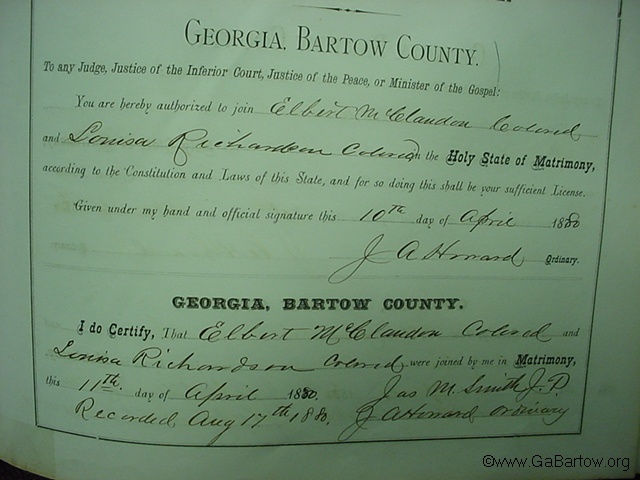 GEORGIA, BARTOW COUNTY.
To any Judge, Justice of the Inferior Court, Justice of the Peace, or Minister of the Gospel:
You are hereby authorized to join Elbert McClandon Colored
and Louisa Richardson Colored in the Holy State of Matrimony,
according to the Constitution and Laws of this State, and for so doing this shall be your sufficient License.
Given under my hand and official signature this 10th day of April 1880
J A Howard Ordinary.
GEORGIA, BARTOW COUNTY.
I do Certify, That Elbert McClandon Colored and
Louisa Richardson Colored were joined by me in Matrimony,
this 11th day of April 1880. Jas M. Smith J. P.
Recorded Aug 17th 1880. J A Howard Ordinary
©www.GaBartow.org